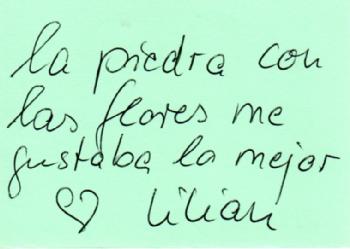 la piedra con
las flores me
gustaba la mejor
♡ Lilian